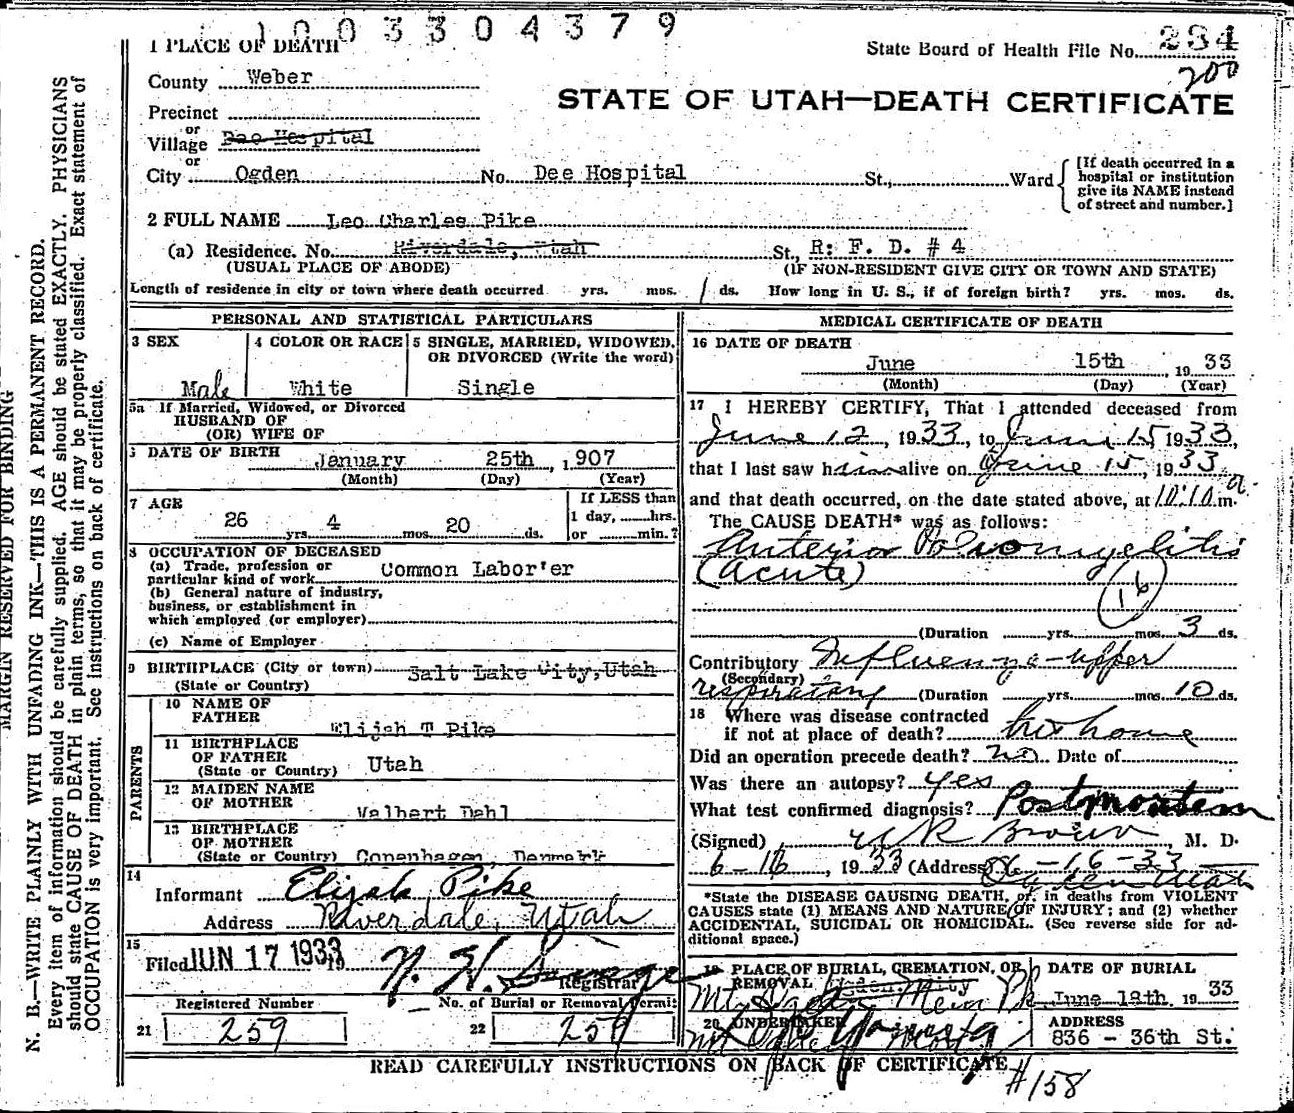 1003304379
1 PLACE OF DEATH
State Board of Health File No. 284
200
County Weber
STATE OF UTAH—DEATH CERTIFICATE
Precinct
or
Village Dee Hospital
or
City Ogden No. Dee Hospital St., Ward
[If death occurred in a
hospital or institution
give its NAME instead
of street and number.]
2 FULL NAME Leo Charles Pike
(a) Residence. No. Riverdale, Utah St., R: F. D. # 4
(USUAL PLACE OF ABODE) (IF NON-RESIDENT GIVE CITY OR TOWN AND STATE)
Length of residence in city or town where death occurred yrs. mos. 1 ds. How long in U. S., if of foreign birth? yrs. mos. ds.
PERSONAL AND STATISTICAL PARTICULARS
3 SEX
Male
4 COLOR OR RACE
White
5 SINGLE, MARRIED, WIDOWED,
OR DIVORCED (Write the word)
Single
5a If Married, Widowed, or Divorced
HUSBAND OF
(OR) WIFE OF
DATE OF BIRTH January 25th, 1907
(Month) (Day) (Year)
7 AGE
26 yrs. 4 mos. 20 ds.
If LESS than
1 day, hrs.
or min.?
8 OCCUPATION OF DECEASED
(a) Trade, profession or
particular kind of work Common Labor'er
(b) General nature of industry,
business, or establishment in
which employed (or employer)
(c) Name of Employer
9 BIRTHPLACE (City or town) Salt Lake City, Utah
(State or Country)
PARENTS
10 NAME OF
FATHER Elijah T Pike
11 BIRTHPLACE
OF FATHER
(State or Country) Utah
12 MAIDEN NAME
OF MOTHER Walbert Dahl
13 BIRTHPLACE
OF MOTHER
(State or Country) Copenhagen, Denmark
14
Informant Elijah Pike
Address Riverdale, Utah
15
Filed JUN 17 1933 19
Registrar
Registered Number
21 259
No. of Burial or Removal Permit
22 259
MEDICAL CERTIFICATE OF DEATH
16 DATE OF DEATH
June 15th, 1933
(Month) (Day) (Year)
17 I HEREBY CERTIFY, That I attended deceased from
June 12, 1933, to June 15 1933,
that I last saw him alive on June 15, 1933
and that death occurred, on the date stated above, at 10:10 a.m.
The CAUSE DEATH* was as follows:
Anterior Poliomyelitis
(Acute)
16
(Duration yrs. mos. 3 ds.
Contributory Influenza-upper
(Secondary)
respiratory (Duration yrs. mos. 10 ds.
18 Where was disease contracted
if not at place of death? home
Did an operation precede death? no Date of
Was there an autopsy? yes
What test confirmed diagnosis? Postmortem
(Signed) Brown M. D.
6-16, 1933 (Address) 6-16-33
Ogden Utah
*State the DISEASE CAUSING DEATH, or, in deaths from VIOLENT
CAUSES state (1) MEANS AND NATURE OF INJURY; and (2) whether
ACCIDENTAL, SUICIDAL OR HOMICIDAL. (See reverse side for ad-
ditional space.)
19 PLACE OF BURIAL, CREMATION, OR
REMOVAL
DATE OF BURIAL
June 18th. 1933
20 UNDERTAKER
ADDRESS
836 - 36th St.
READ CAREFULLY INSTRUCTIONS ON BACK OF CERTIFICATE
#158
MARGIN RESERVED FOR BINDING
N. B.—WRITE PLAINLY WITH UNFADING INK—THIS IS A PERMANENT RECORD.
Every item of information should be carefully supplied. AGE should be stated EXACTLY. PHYSICIANS
should state CAUSE OF DEATH in plain terms, so that it may be properly classified. Exact statement of
OCCUPATION is very important. See instructions on back of certificate.